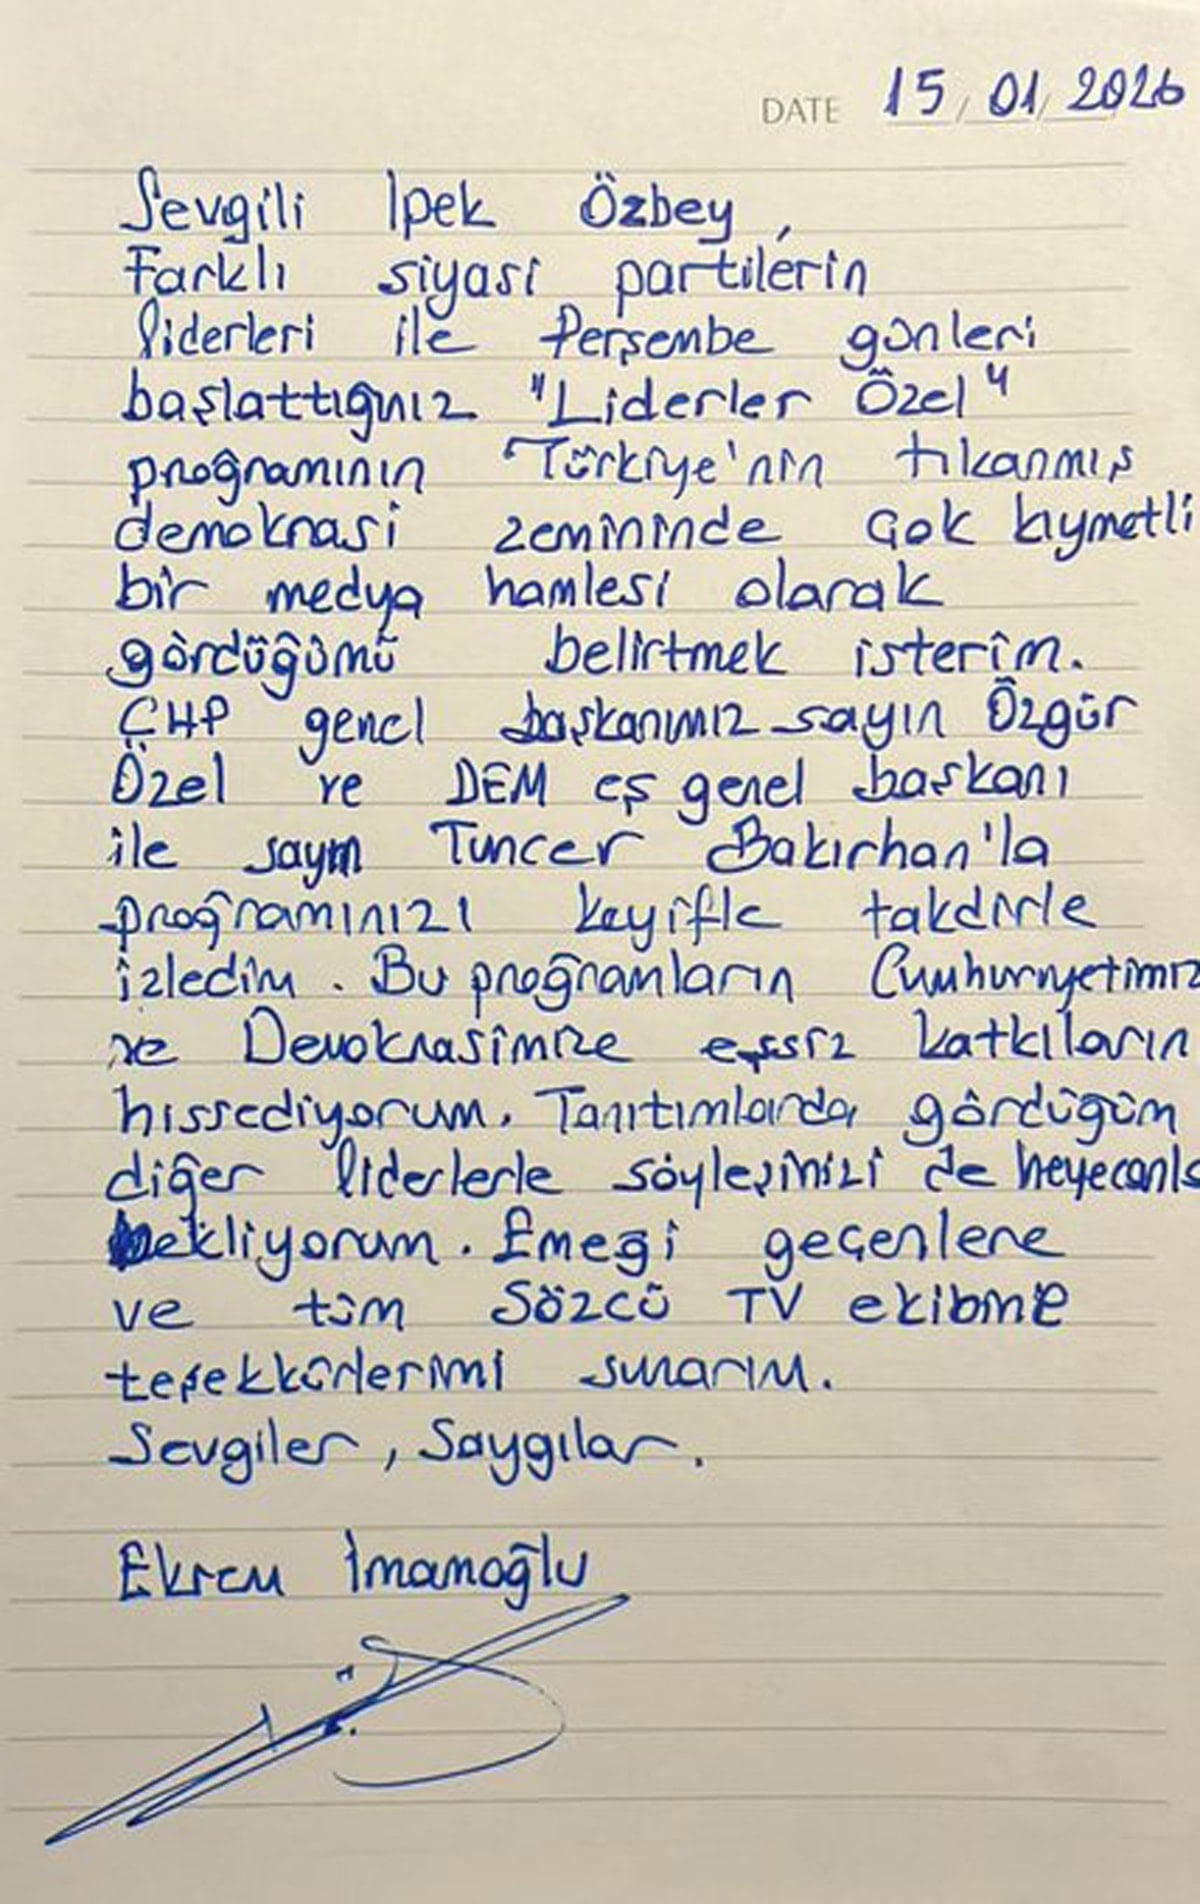 DATE 15/01/2026
Sevgili İpek Özbey,
Farklı siyasi partilerin
liderleri ile Perşembe günleri
başlattığınız "Liderler Özel"
proğramının Türkiye'nin tıkanmış
demokrasi zemininde çok kıymetli
bir medya hamlesi olarak
gördüğümü belirtmek isterim.
CHP genel başkanımız sayın Özgür
Özel ve DEM eş genel başkanı
ile sayın Tuncer Bakırhan'la
proğramınızı keyifle takdirle
izledim. Bu proğramların Cumhuriyetimiz
ve Demokrasimize eşsiz katkıların
hissediyorum. Tanıtımlarda gördüğüm
diğer liderlerle söyleşinizi de heyecanla
bekliyorum. Emeği geçenlere
ve tüm Sözcü TV ekibine
teşekkürlerimi sunarım.
Sevgiler, Saygılar.
Ekrem İmamoğlu